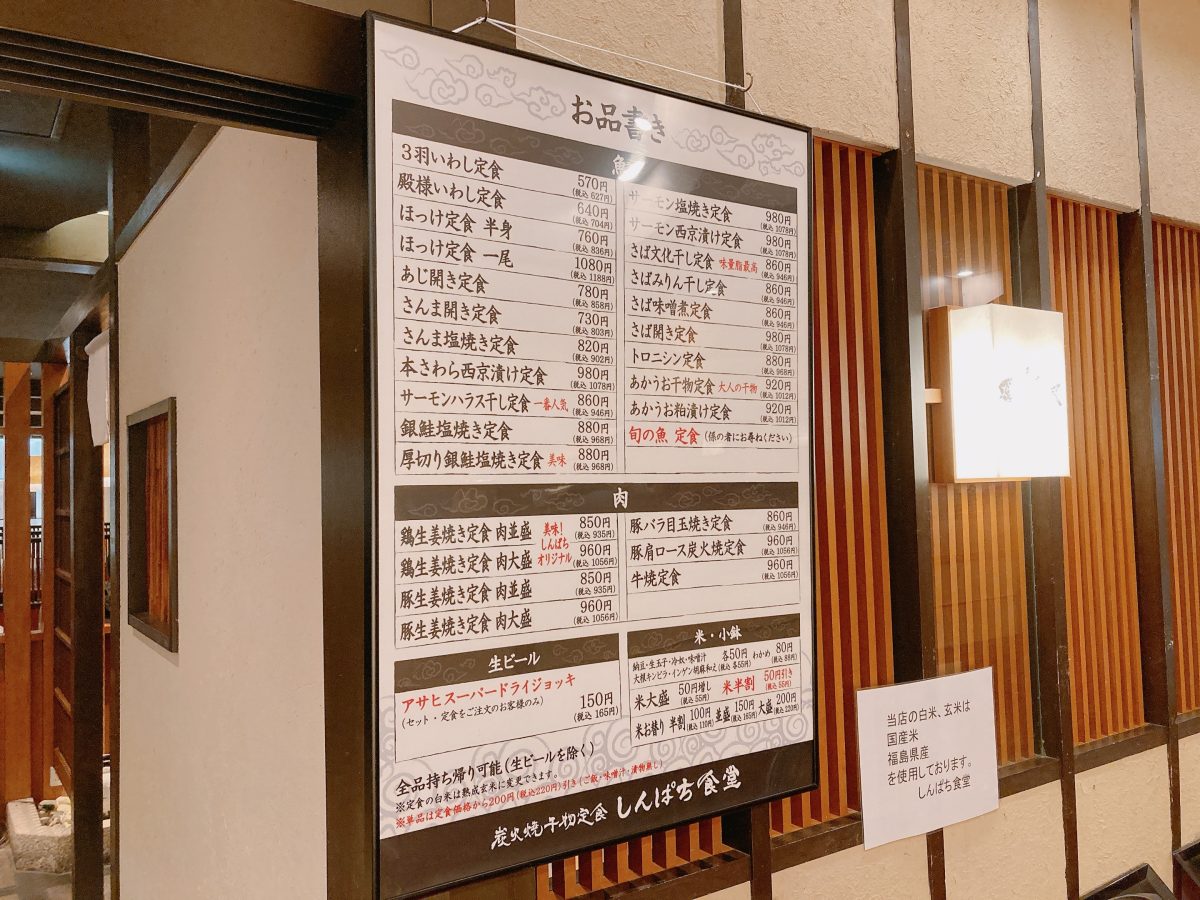 お品書き
魚
3羽いわし定食 570円 (税込 627円)
殿様いわし定食 640円 (税込 704円)
ほっけ定食 半身 760円 (税込 836円)
ほっけ定食 一尾 1080円 (税込 1188円)
あじ開き定食 780円 (税込 858円)
さんま開き定食 730円 (税込 803円)
さんま塩焼き定食 820円 (税込 902円)
本さわら西京漬け定食 980円 (税込 1078円)
サーモンハラス干し定食 一番人気 860円 (税込 946円)
銀鮭塩焼き定食 880円 (税込 968円)
厚切り銀鮭塩焼き定食 美味 880円 (税込 968円)
サーモン塩焼き定食 980円 (税込 1078円)
サーモン西京漬け定食 980円 (税込 1078円)
さば文化干し定食 味量脂最高 860円 (税込 946円)
さばみりん干し定食 860円 (税込 946円)
さば味噌煮定食 860円 (税込 946円)
さば開き定食 980円 (税込 1078円)
トロニシン定食 880円 (税込 968円)
あかうお干物定食 大人の干物 920円 (税込 1012円)
あかうお粕漬け定食 920円 (税込 1012円)
旬の魚 定食 (係の者にお尋ねください)
肉
鶏生姜焼き定食 肉並盛 850円 (税込 935円)
鶏生姜焼き定食 肉大盛 960円 (税込 1056円)
美味!
しんぱち
オリジナル
豚生姜焼き定食 肉並盛 850円 (税込 935円)
豚生姜焼き定食 肉大盛 960円 (税込 1056円)
豚バラ目玉焼き定食 860円 (税込 946円)
豚肩ロース炭火焼定食 960円 (税込 1056円)
牛焼定食 960円 (税込 1056円)
生ビール
アサヒスーパードライジョッキ
(セット・定食をご注文のお客様のみ) 150円 (税込 165円)
米・小鉢
納豆・生玉子・冷奴・味噌汁
大根キンピラ・インゲン胡麻和え 各50円 (税込 各55円) わかめ 80円 (税込 88円)
米大盛 50円増し (税込 55円) 米半割 50円引き (税込 55円)
米お替り 半割 100円 (税込 110円) 並盛 150円 (税込 165円) 大盛 200円 (税込 220円)
全品持ち帰り可能(生ビールを除く)
※定食の白米は熟成玄米に変更できます。
※単品は定食価格から200円(税込220円)引き(ご飯・味噌汁・漬物無し)
炭火焼干物定食 しんぱち食堂
当店の白米、玄米は
国産米
福島県産
を使用しております。
しんぱち食堂